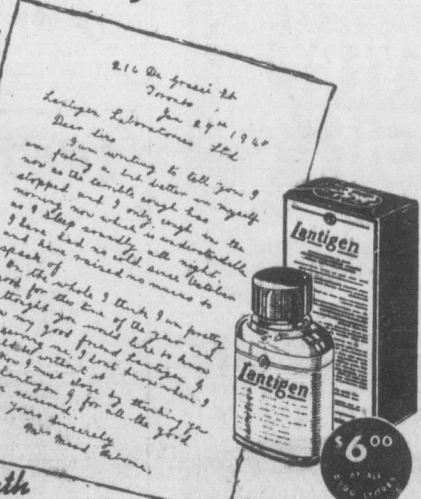 216 De Grassi St
Toronto
Jan 29th, 194
Lantigen Laboratories Ltd
Dear Sirs
I am writing to tell you I
am feeling a lot better in myself
now as the terrible cough has
stopped and I only cough in the
morning now which is understandable
as I sleep soundly all night
I have had no cold since
and have raised no mucus to
speak of.
On the whole I think I am pretty
good for the time of the year and
thought you would like to know
my good friend Lantigen B
serving me I dont know when I
without it
Now I must close by thanking you
Lantigen B for all the good
received.
Yours sincerely
Mrs Osborne.
Lantigen
Lantigen
$6.00
AT ALL
DRUG STORES
th